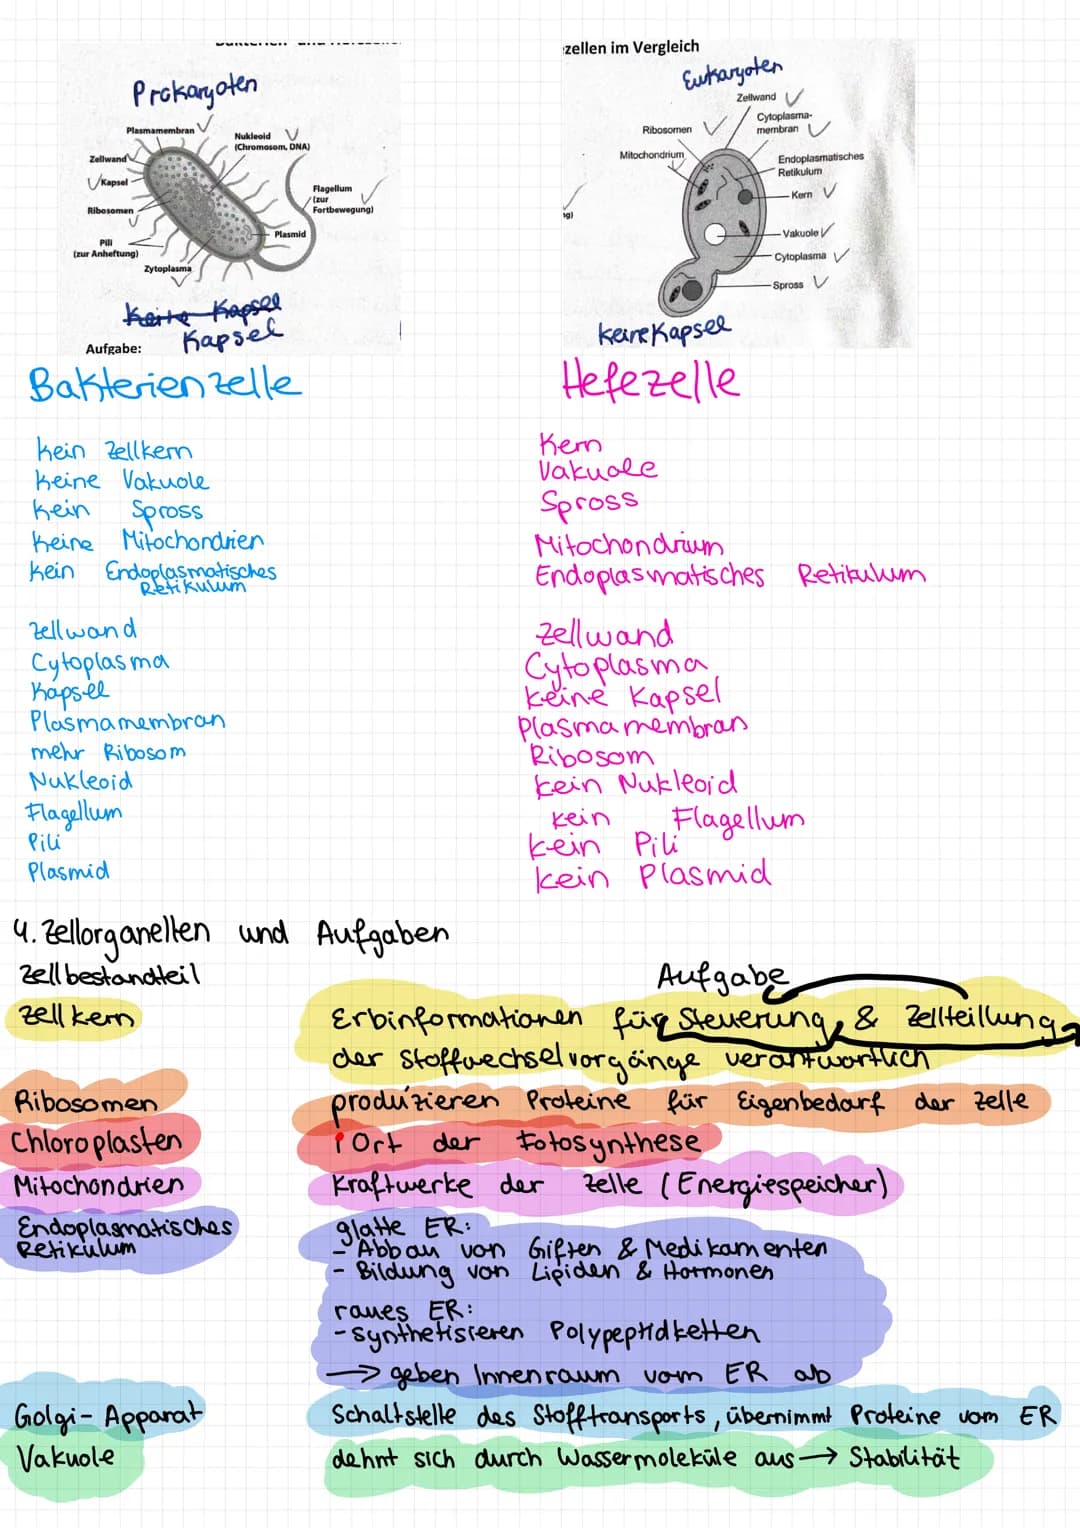 zellen im Vergleich
Prokaryoten
Plasmamembran
Nukleoid
(Chromosom, DNA)
Zellwand
Kapsel
Flagellum
(zur
Fortbewegung)
Ribosomen
Plasmid
Pili
(zur Anheftung)
Zytoplasma
Keine Kapsel
Kapsel
Aufgabe:
Eukaryoten
Zellwand
Cytoplasma-
membran
Ribosomen
Mitochondrium
Endoplasmatisches
Retikulum
Kern
ng)
Vakuole
Cytoplasma
Spross
keine Kapsel
Bakterienzelle
kein Zellkern
keine Vakuole
kein Spross
keine Mitochondrien
kein Endoplasmatisches
Retikulum
Zellwand
Cytoplasma
Kapsel
Plasmamembran
mehr Ribosom
Nukleoid
Flagellum
Pili
Plasmid
Hefezelle
Kern
Vakuole
Spross
Mitochondrium
Endoplasmatisches Retikulum
Zellwand
Cytoplasma
keine Kapsel
Plasmamembran
Ribosom
kein Nukleoid
kein Flagellum
kein Pili
kein Plasmid
4. Zellorganellen und Aufgaben
Zellbestandteil Aufgabe
Zellkern Erbinformationen für Steuerung & Zellteilung
der Stoffwechselvorgänge verantwortlich
Ribosomen produzieren Proteine für Eigenbedarf der Zelle
Chloroplasten Ort der Fotosynthese
Mitochondrien Kraftwerke der Zelle (Energiespeicher)
Endoplasmatisches
Retikulum
glatte ER:
- Abbau von Giften & Medikamenten
- Bildung von Lipiden & Hormonen
raues ER:
- synthetisieren Polypeptidketten
→ geben Innenraum vom ER ab
Golgi-Apparat Schaltstelle des Stofftransports, übernimmt Proteine vom ER
Vakuole dehnt sich durch Wassermoleküle aus → Stabilität